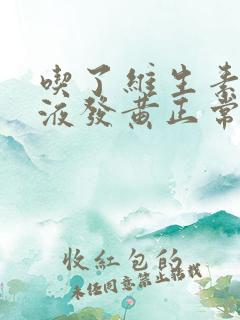 喫了維生素
液發黃正常
收紅包的
未经同意禁止转载